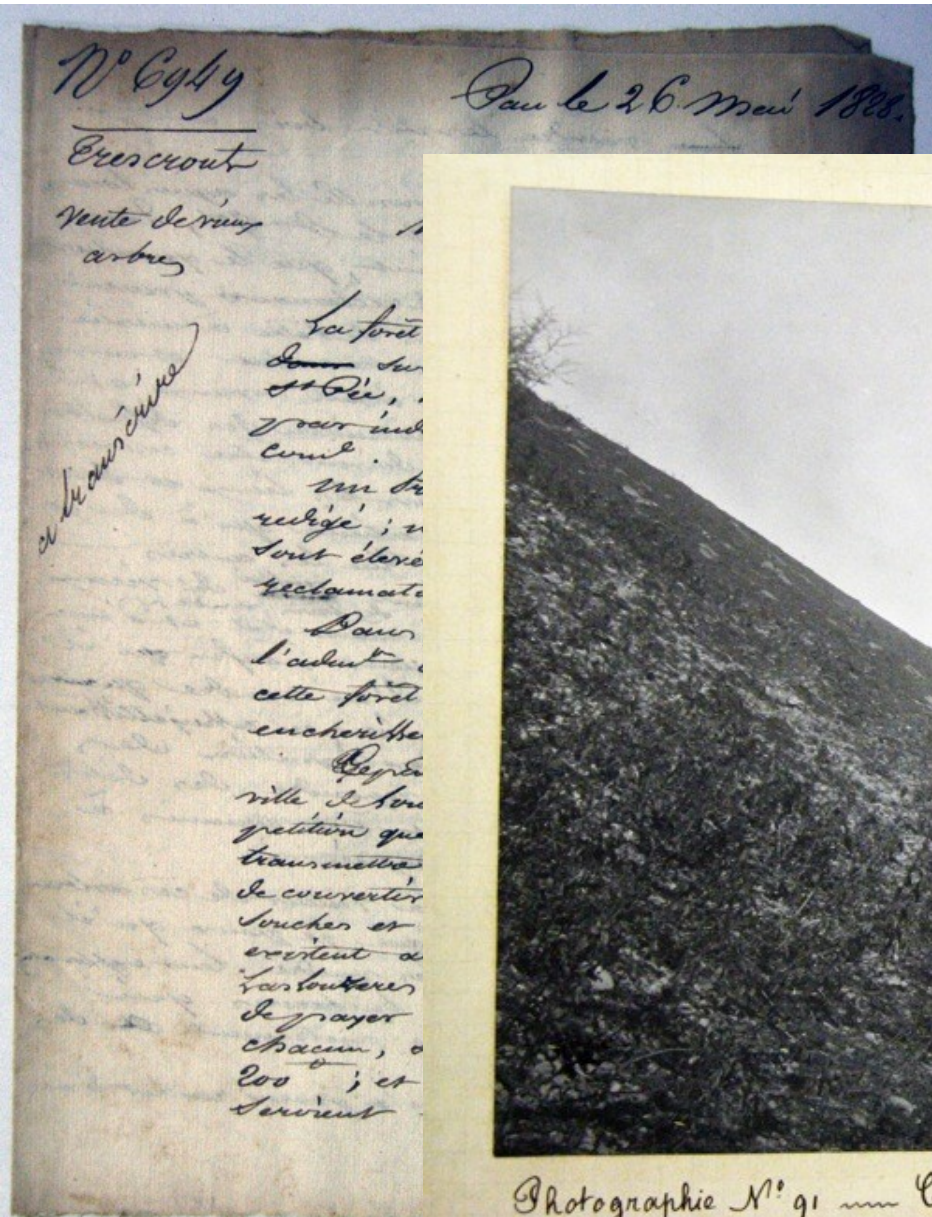 N° 6949
Pau le 26 mai 1828.
Trescrouts
vente de vieux
arbres
a transcrire
La forêt
dans sur
St Pée,
par ind
coml.
un
redigé ;
sont élevé
reclamati
Dans
l'adm
cette forêt
encherisse
ville de Lou
petition que
transmettre
de convertir
souches et
existent a
de payer
chacun,
200 ; et
seroient
Photographie N° 91